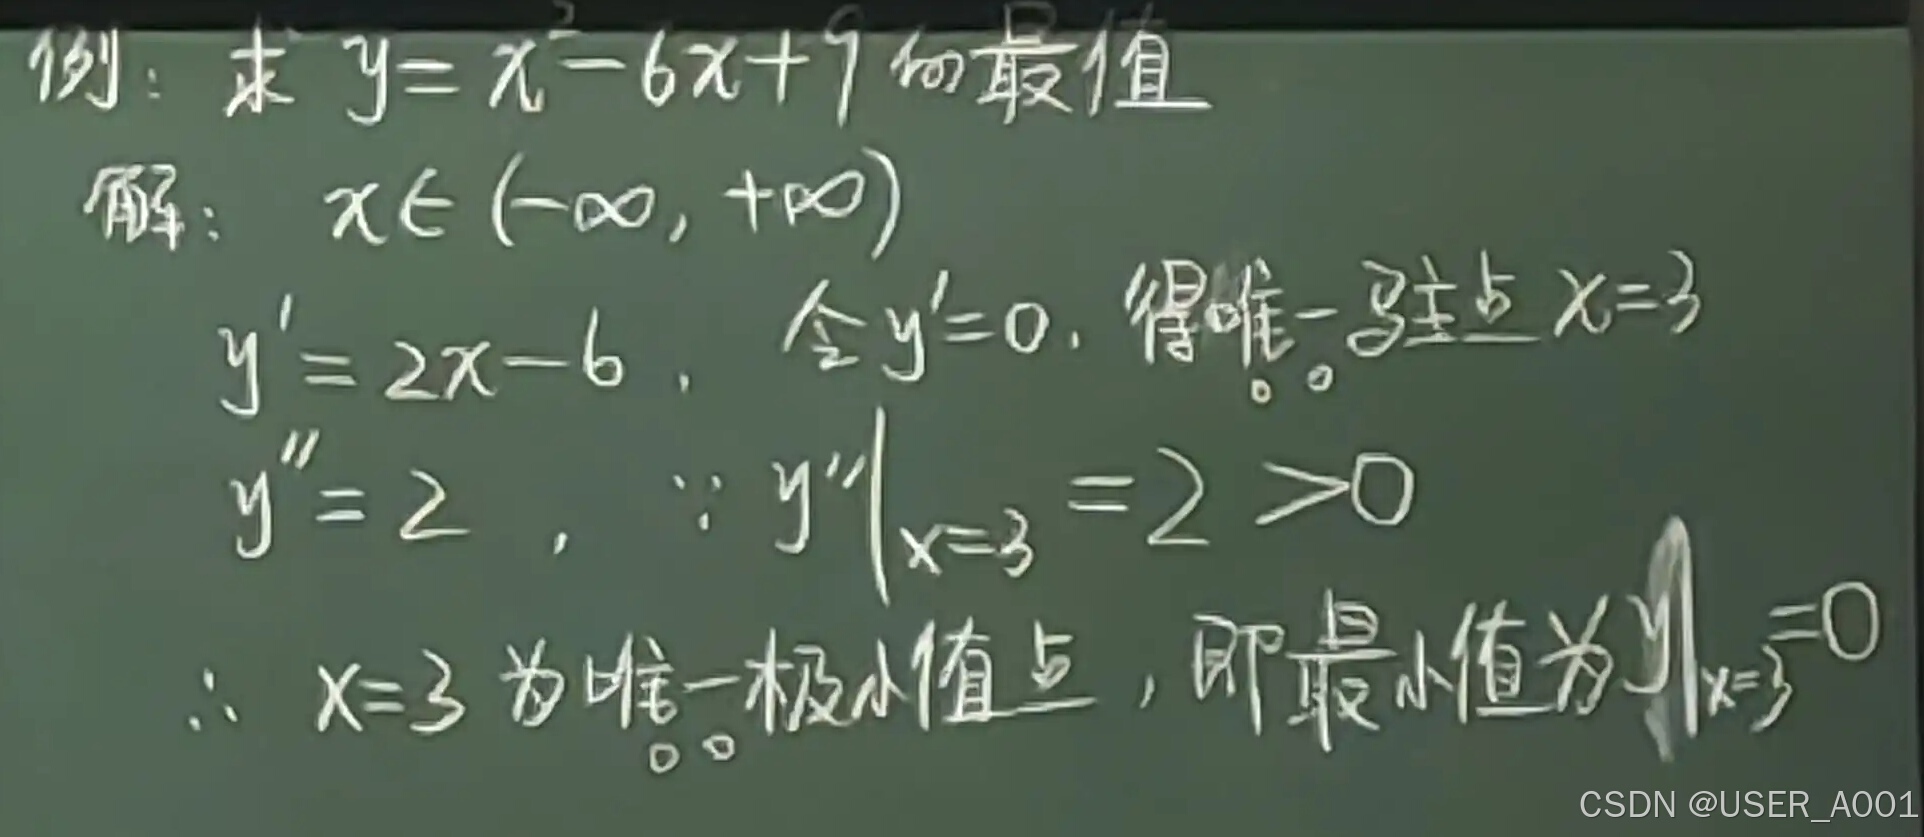 例：求 y=x²-6x+9 的最值
解： x∈(-∞, +∞)
y'=2x-6, 令y'=0, 得唯一驻点 x=3
y''=2, ∵ y''|x=3 =2>0
∴ x=3 为唯一极小值点, 即最小值为y|x=3=0
CSDN @USER_A001